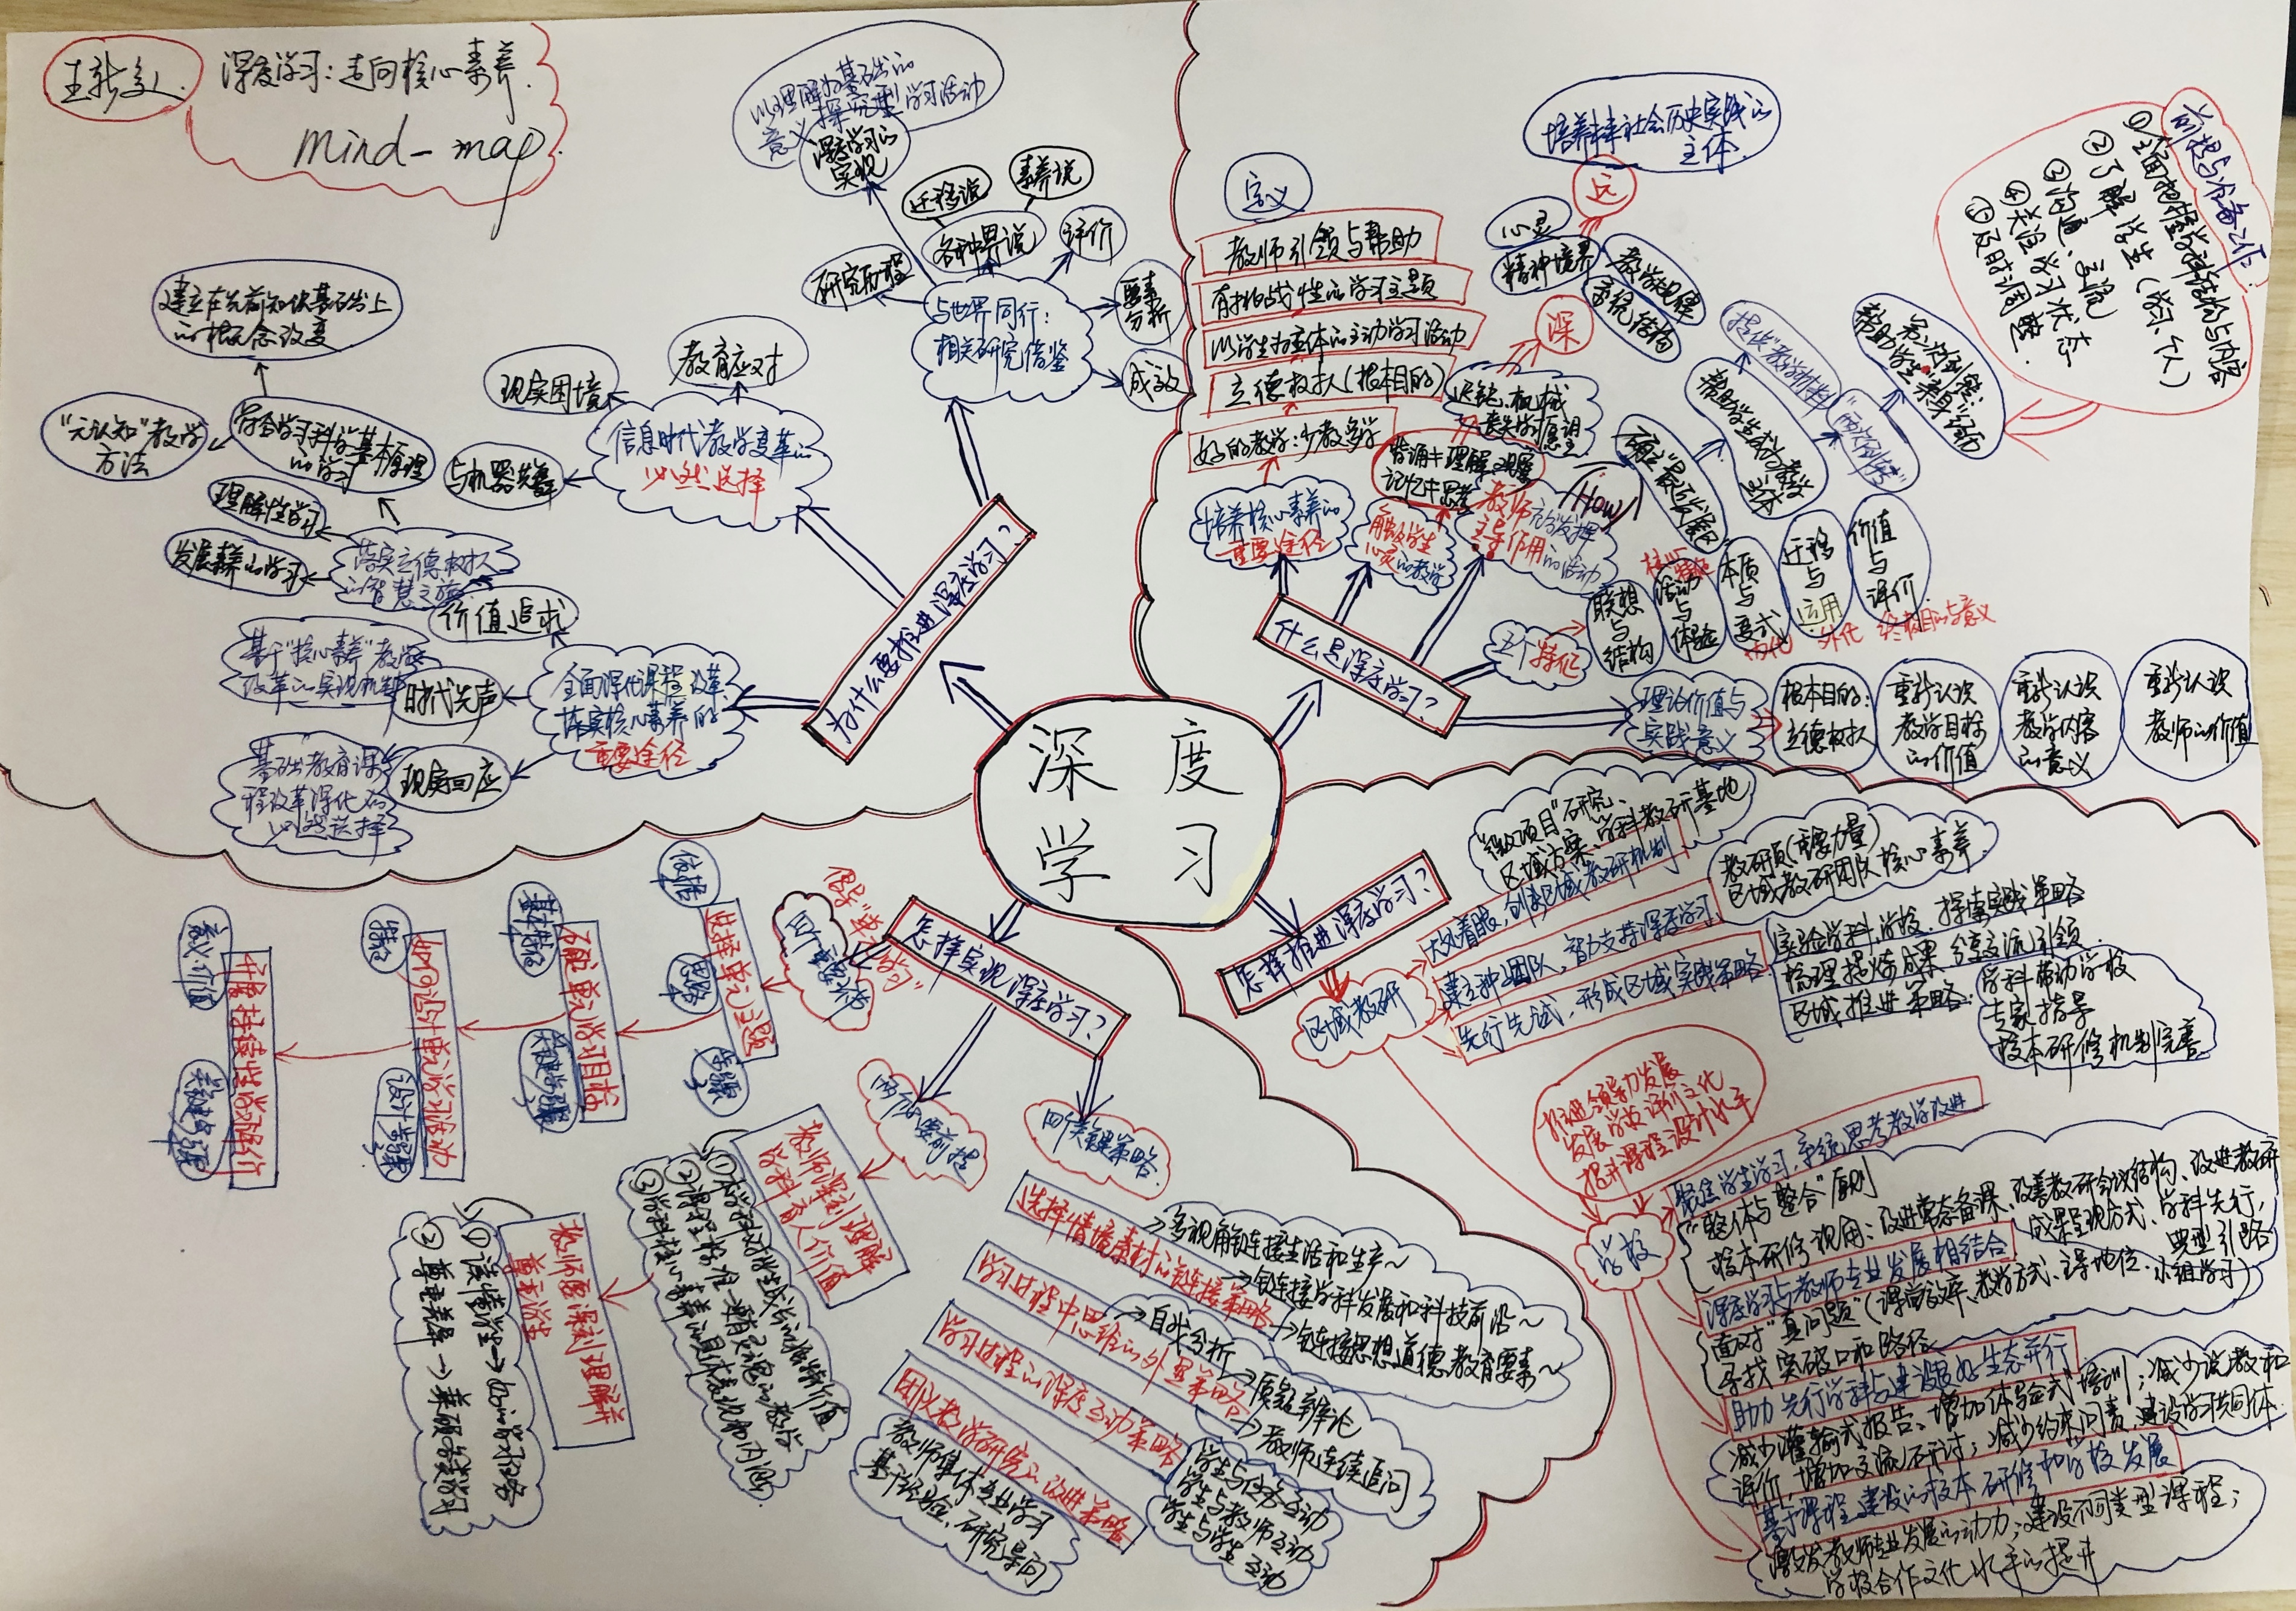 深度学习:走向核心素养.
mind-map.
深度
学习
为什么要推进深度学习?
信息时代教学变革的
必然选择
教育应对
现实困境
与机器共舞
与世界同行:
相关研究借鉴
研究历程
各种界说
迁移说
素养说
评价
要素
分析
成效
深度学习的
实现
以理解为基础的
意义探究型学习活动
落实立德树人
的智慧之旅
符合学习科学基本原理
的学习
建立在先前知识基础上
的概念改变
"元认知"教学
方法
理解性学习
发展素养的学习
全面深化课程改革、
落实核心素养的
重要途径
价值追求
时代先声
基于"核心素养"教学
改革的实现机制
现实回应
基础教育课
程改革深化的
必然选择
什么是深度学习?
定义
教师引领与帮助
有挑战性的学习主题
以学生为主体的主动学习活动
立德树人(根本目的)
好的教学:少教多学
培养核心素养的
重要途径
触及学生
心灵的教学
教师充分发挥
主导作用的活动
(How)
记忆+思考
深
远
心灵
精神境界
教学规律
系统结构
培养社会历史实践的
主体.
确立"最近发展区"
帮助学生成为教学
主体
提供"教学材料"
"两次倒转"
帮助学生亲身"经历"
前提与准备工作:
①全面把握学科结构与内容
②了解学生(学习、个人)
③沟通、交流
④关注学习状态
⑤及时调整.
五个特征
联想
与
结构
活动
与
体验
本质
与
变式
迁移
与
运用
价值
与
评价
内化
外化
终极目的与意义
理论价值与
实践意义
根本目的:
立德树人
重新认识
教学目标
的价值
重新认识
教学内容
的意义
重新认识
教师的价值
怎样实现深度学习?
倡导"单元学习"
四个重要环节
选择单元主题
依据
思路
步骤
确定单元学习目标
基本特征
关键步骤
如何设计单元学习活动
特征
设计步骤
开展持续性学习评价
意义.价值
关键步骤
两个必要前提
教师深刻理解
学科育人价值
①本学科对学生成长的独特价值
②课程标准——颇有灵魂的教学
③学科核心素养的具体表现和内涵.
教师要深刻理解并
尊重学生
①读懂学生→
②尊重差异→
四个关键策略.
选择情境素材的链接策略
→多视角链接生活和生产~
→链接学科发展和科技前沿~
→链接思想道德教育要素~
学习过程中思维的外显策略
→自我分析
→质疑辩论
→教师连续追问
学习过程的深度互动策略
学生与任务互动
学生与教师互动
学生与学生互动
团队教学研究的改进策略
教师集体专业学习
基于经验、研究导向
怎样推进深度学习?
区域教研
大处着眼,创新区域教研机制.
"微项目"研究、
区域方案、学科教研基地
建立种子团队,智力支持深度学习.
教研员(重要力量)
区域教研团队核心素养
先行先试,形成区域实践策略
实验学科、学校.探索实践策略
梳理提炼成果.分享交流引领
区域推进策略:
学科带动学校
专家指导
校本研修机制完善
学校
推进领导力发展
发展学校评价文化
提升课程设计水平
聚焦学生学习,系统思考教学改进
"整体与整合"原则
校本研修视角:改进常态备课、改善教研会议结构、改进教研
成果呈现方式、学科先行,
典型引路
深度学习与教师专业发展相结合
面对"真问题"(课堂效率、教学方式、主导地位.小组学习)
寻找突破口和路径
助力先行学科与建设良好生态并行
减少灌输式报告、增加体验式培训;减少说教和
评价,增加交流研讨;减少约束问责,建设学习共同体.
基于课程建设的校本研修和学校发展
激发教师专业发展的动力;建设不同类型课程;
学校合作文化水平的提升